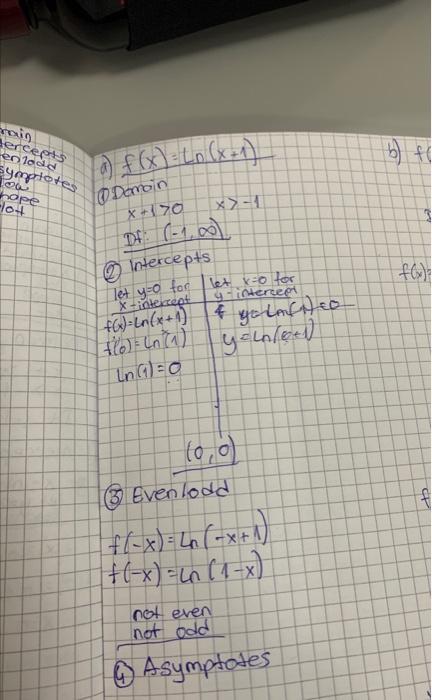 ercepts
symptotes
a) f(x)=Ln(x+1)
① Domain
x+1>0 x>-1
Df: (-1,∞)
② Intercepts
let y=0 for
x-intercept
f(x)=Ln(x+1)
f(0)=Ln(1)
Ln(1)=0
let x=0 for
y-intercept
y=Ln(1)=0
y=Ln(0+1)
(0,0)
③ Even/odd
f(-x)=Ln(-x+1)
f(-x)=Ln(1-x)
not even
not odd
④ Asymptotes
b) f(
f(x)=
f